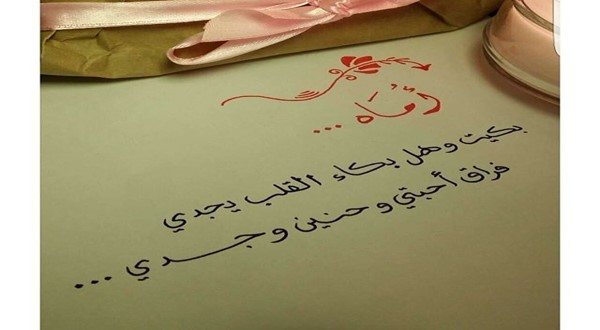 أمّاه ...
بكيت وهل بكاء القلب يجدي
فراق أحبتي وحنين وجدي ...